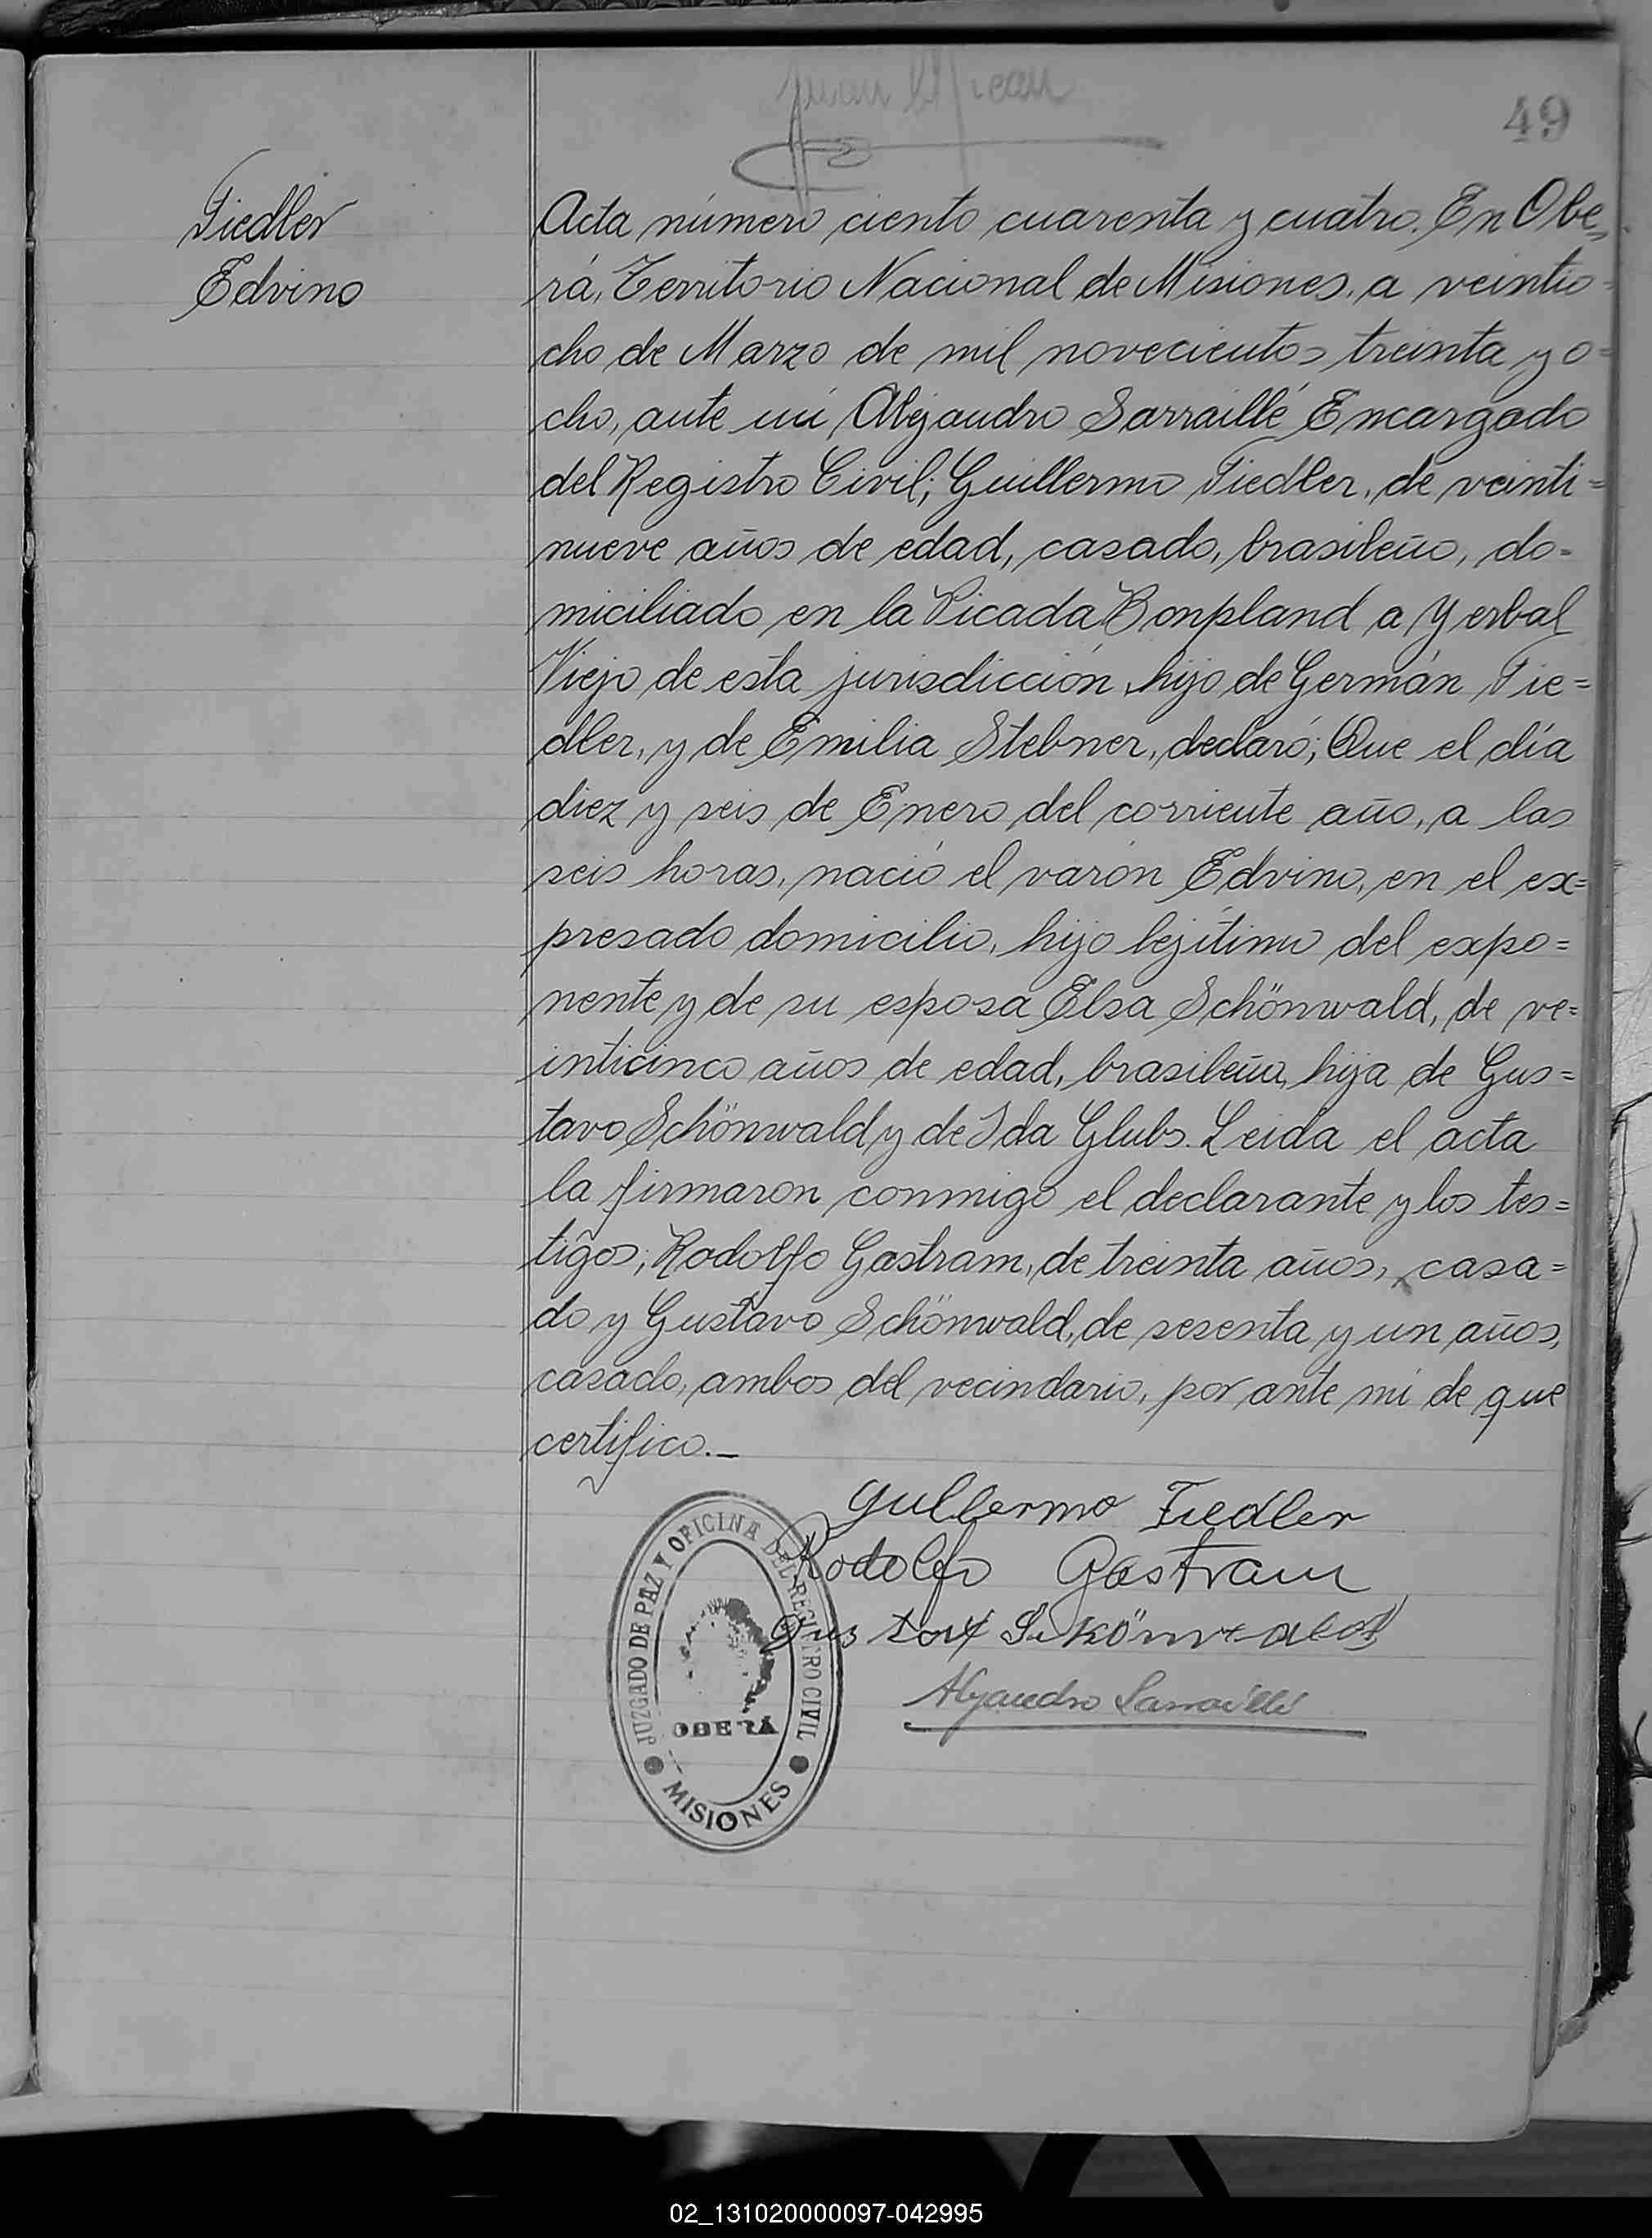 49
Fiedler
Edvino
Acta número ciento cuarenta y cuatro. En Obe=
rá, Territorio Nacional de Misiones, a veintio=
cho de Marzo de mil novecientos treinta y o=
cho, ante mi Alejandro Sarraillé Encargado
del Registro Civil; Guillermo Fiedler, de veinti=
nueve años de edad, casado, brasileño, do=
miciliado en la Picada Bonpland a Yerbal
Viejo de esta jurisdicción, hijo de Germán Fie=
dler, y de Emilia Stebner, declaró; Que el día
diez y seis de Enero del corriente año, a las
seis horas, nació el varón Edvino, en el ex=
presado domicilio, hijo lejítimo del expo=
nente y de su esposa Elsa Schönwald, de ve=
inticinco años de edad, brasileña, hija de Gus=
tavo Schönwald y de Ida Glubs. Leida el acta
la firmaron conmigo el declarante y los tes=
tigos; Rodolfo Gastram, de treinta años, casa=
do y Gustavo Schönwald, de sesenta y un años,
casado, ambos del vecindario, por ante mi de que
certifico._
Guillermo Fiedler
Rodolfo Gastram
Gustav Schönwald
Alejandro Sarraillé
JUZGADO DE PAZ Y OFICINA DEL REGISTRO CIVIL
OBERÁ
MISIONES
02_131020000097-042995